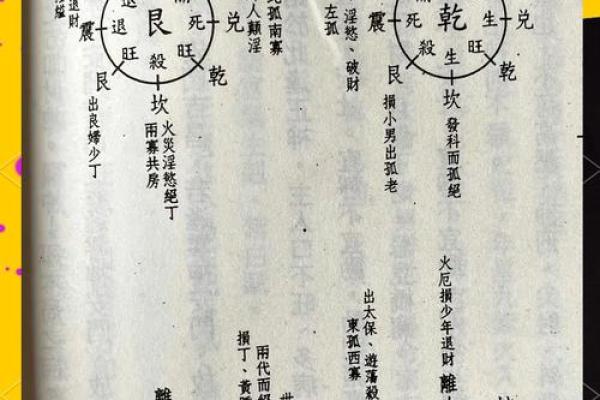 兌
生
乾
旺
生
坎
發科而孤絕
乾
死
殺
震
艮
損小男出孤老
淫慾、破財
左孤
兌
死
乾
旺
孤南寡
人顛淫
艮
殺
坎
火災淫慾絕丁
兩寡共房
退
退
旺
震
艮
出良婦少丁
退財
火厄損少年退財
離
出太保、遊蕩殺
東孤西寡
兩代而絕
損丁、黃
離